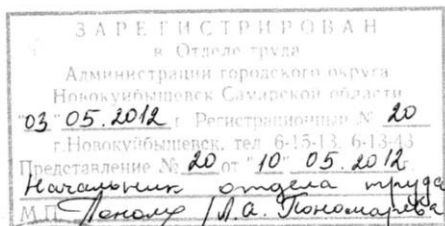 ЗАРЕГИСТРИРОВАН
в Отделе труда
Администрации городского округа
Новокуйбышевск Самарской области
"03" 05.2012 г. Регистрационный № 20
г.Новокуйбышевск, тел. 6-15-13, 6-13-43
Представление № 20 от "10" 05.2012
Начальник отдела труда
М.П. /Л.А. Пономарева